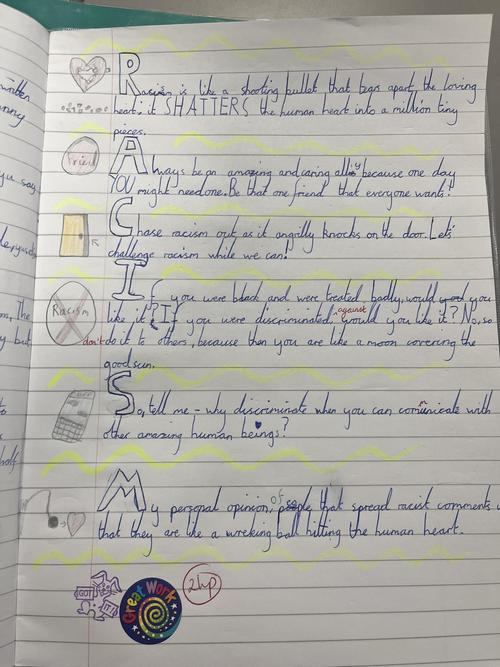 Racism is like a shooting bullet that tears apart the loving
heart. it SHATTERS the human heart into a million tiny
pieces.
Friend
Always be an amazing and caring ally because one day
YOU might need one. Be that one friend that everyone wants!
Chase racism out as it angrily knocks on the door. Let's
challenge racism while we can!
If you were black and were treated badly, would you
Racism
like it? If you were discriminated against, would you like it? No, so
don't do it to others, because than you are like a moon covering the
good sun.
So, tell me - why discriminate when you can comunicate with
other amazing human beings?
My personal opinion, of people that spread racist comments
that they are like a wrecking ball hitting the human heart.
GOT IT!
Great Work
2hp
written
you say
The
but
to
half